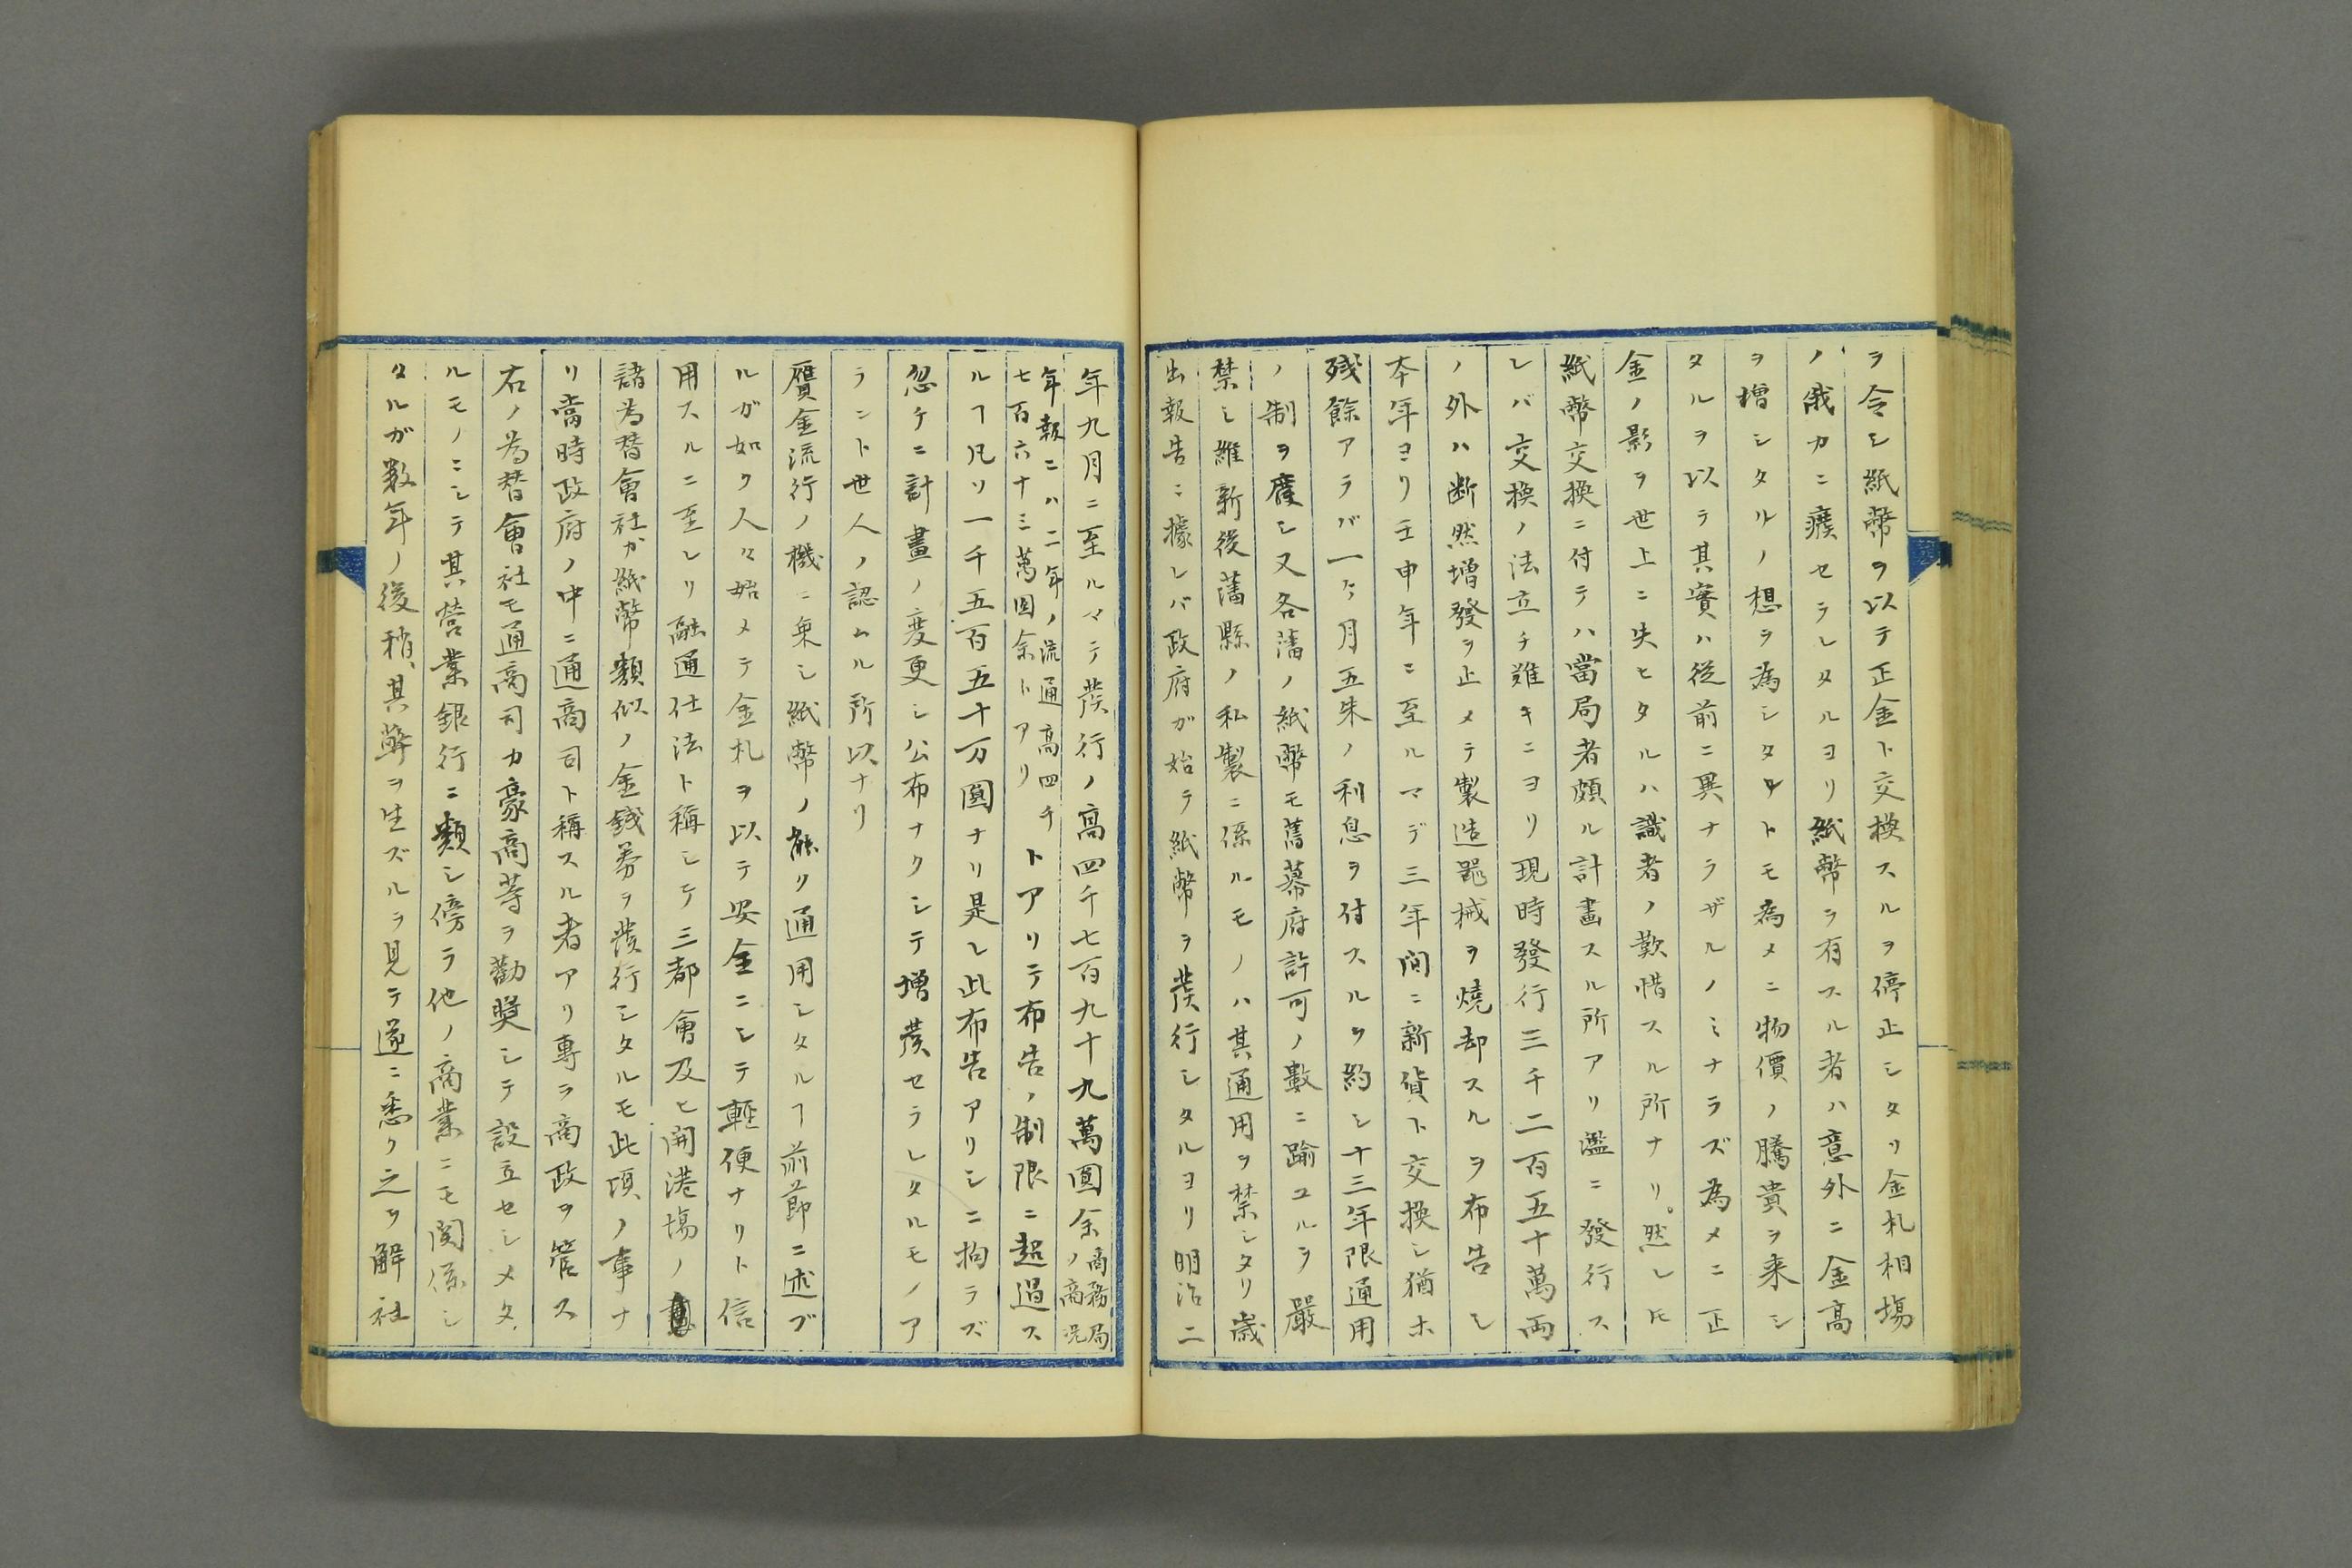 ヲ令シ紙幣ヲ以テ正金ト交換スルヲ停止シタリ金札相場
ノ俄カニ癈セラレタルヨリ紙幣ヲ有スル者ハ意外ニ金高
ヲ増シタルノ想ヲ為シタルトモ為メニ物價ノ騰貴ヲ来シ
タルヲ以テ其實ハ従前ニ異ナラザルノミナラズ為メニ正
金ノ影ヲ世上ニ失ヒタルハ識者ノ歎惜スル所ナリ。然レ𪜈
紙幣交換ニ付テハ當局者頗ル計畫スル所アリ濫ニ發行ス
レバ交換ノ法立チ難キニヨリ現時發行三千二百五十萬両
ノ外ハ断然増發ヲ止メテ製造噐械ヲ燒却スルヲ布告シ
本年ヨリ壬申年ニ至ルマデ三年間ニ新貨ト交換シ猶ホ
残餘アラバ一ケ月五朱ノ利息ヲ付スルヲ約シ十三年限通用
ノ制ヲ廢シ又各藩ノ紙幣モ舊幕府許可ノ數ニ踰ユルヲ嚴
禁シ維新後藩縣ノ私製ニ係ルモノハ其通用ヲ禁シタリ歳
出報告ニ據レバ政府ガ始テ紙幣ヲ発行シタルヨリ明治二
年九月ニ至ルマテ発行ノ高四千七百九十九萬圓余商務局ノ商况
年報ニハ二年ノ流通高四千七百六十三萬圓余トアリトアリテ布告ノ制限ニ超過ス
ルヿ凡ソ一千五百五十万圓ナリ是レ此布告アリシニ拘ラズ
忽チニ計畫ノ変更シ公布ナクシテ増発セラレタルモノア
ラント世人ノ認ムル所以ナリ
贋金流行ノ機ニ乗シ紙幣ノ能ク通用シタルヿ前節ニ述ブ
ルガ如ク人々始メテ金札ヲ以テ安全ニシテ輕便ナリト信
用スルニ至レリ融通仕法ト稱シテ三都會及ヒ開港場ノ
諸為替會社カ紙幣類似ノ金銭券ヲ発行シタルモ此頃ノ事ナ
リ當時政府ノ中ニ通商司ト稱スル者アリ專ラ商政ヲ管ス
右ノ為替會社モ通商司カ豪商等ヲ勸奬シテ設立セシメタ
ルモノニシテ其営業銀行ニ類シ傍ラ他ノ商業ニモ関係シ
タルガ数年ノ後稍、其弊ヲ生ズルヲ見テ遂ニ悉ク之ヲ解社